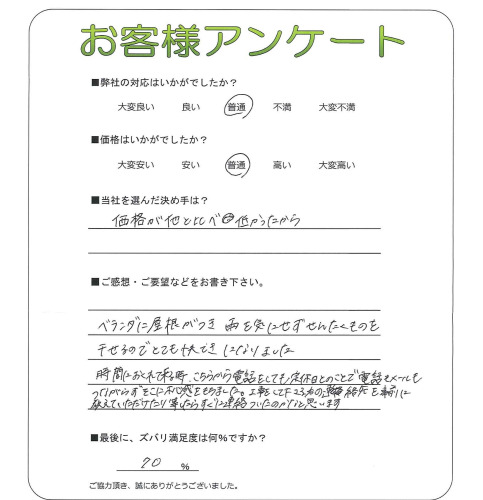 お客様アンケート
■弊社の対応はいかがでしたか？
大変良い 良い 普通 不満 大変不満
■価格はいかがでしたか？
大変安い 安い 普通 高い 大変高い
■当社を選んだ決め手は？
価格が他と比べ低かったから
■ご感想・ご要望などをお書き下さい。
ベランダに屋根がつき 雨を気にせずせんたくものを
干せるのでとても快てきになりました
時間におくれて来る時、こちらから電話をしても定休日とのことで電話もメールも
つながらずそこに不安感をもちました。工事をして下さる方の連絡先を事前に
教えていただけたり 等したらすぐに連絡ついたのかなと思います
■最後に、ズバリ満足度は何％ですか？
70 ％
ご協力頂き、誠にありがとうございました。